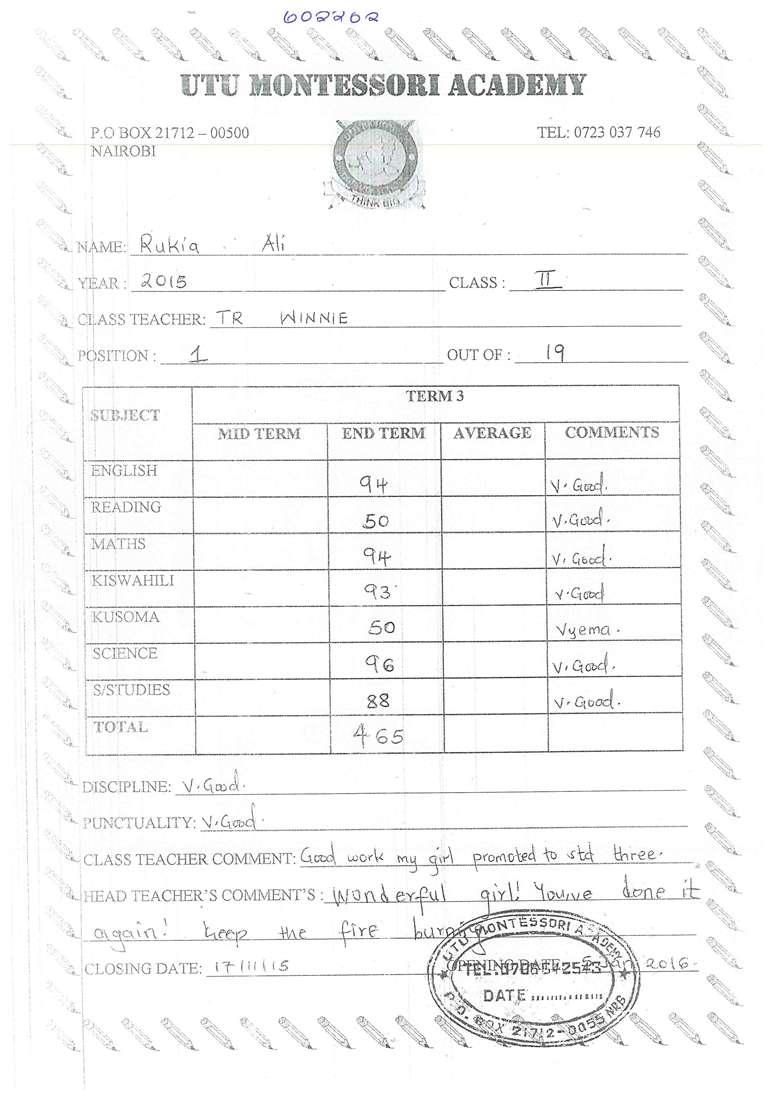 602202
UTU MONTESSORI ACADEMY
P.O BOX 21712 – 00500 TEL: 0723 037 746
NAIROBI
THINK BIG
NAME: Rukia Ali
YEAR : 2015 CLASS : II
CLASS TEACHER: TR WINNIE
POSITION : 1 OUT OF : 19
SUBJECT TERM 3
MID TERM END TERM AVERAGE COMMENTS
ENGLISH 94 V. Good.
READING 50 V. Good.
MATHS 94 V. Good.
KISWAHILI 93 V. Good
KUSOMA 50 Vyema.
SCIENCE 96 V. Good.
S/STUDIES 88 V. Good.
TOTAL 465
DISCIPLINE: V. Good.
PUNCTUALITY: V. Good.
CLASS TEACHER COMMENT: Good work my girl promoted to std three.
HEAD TEACHER'S COMMENT'S : Wonderful girl! You've done it
again! keep the fire burning
CLOSING DATE: 17/11/15 OPENING DATE: 2016.
UTU MONTESSORI ACADEMY
TEL:0706542543
DATE ............
P.O. BOX 21712-0055 NRS